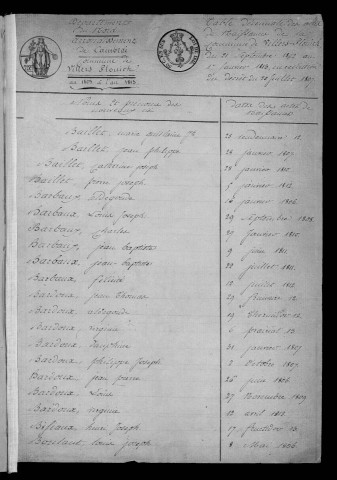 Département
du Nord
Arrondissement
de Cambrai
Commune de
Villers Plouich
an 1802 à l'an 1813
Table Décennale des actes
de Naissance de la
commune de Villers-Plouich
du Septembre 1802 au
1er Janvier 1813, en exécution
du Décret du 20 Juillet 1807
Noms et prénoms des
Dates des actes de
Naissance
Baillet, marie
25 vendémiaire 12
Baillet, jean philippe
28 janvier 1807
Baillet, Catherine joseph
28 janvier 1810
Baillet, firmin joseph
5 janvier 1812
Barbaux, hildegonde
16 janvier 1806
Barbaux, Louis Joseph
29 Septembre 1808
Barbaux, Charles
27 janvier 1810
Barbaux, jean baptiste
9 juin 1811
Barbaux, jean baptiste
22 juillet 1811
Bardoux, félicité
12 juillet 1812
Bardoux, jean thomas
29 frimaire 12
Bardoux, aldegonde
29 thermidor 12
Bardoux, virginie
6 prairial 13
Bardoux, Delphine
31 janvier 1807
Bardoux, philippe joseph
2 Octobre 1807
Bardoux, jean pierre
26 juin 1806
Bardoux, Louis
27 Novembre 1809
Bardoux, virginie
12 avril 1812
Bisiaux, henri joseph
17 fructidor 12
Boulant, louis joseph
8 Mai 1806